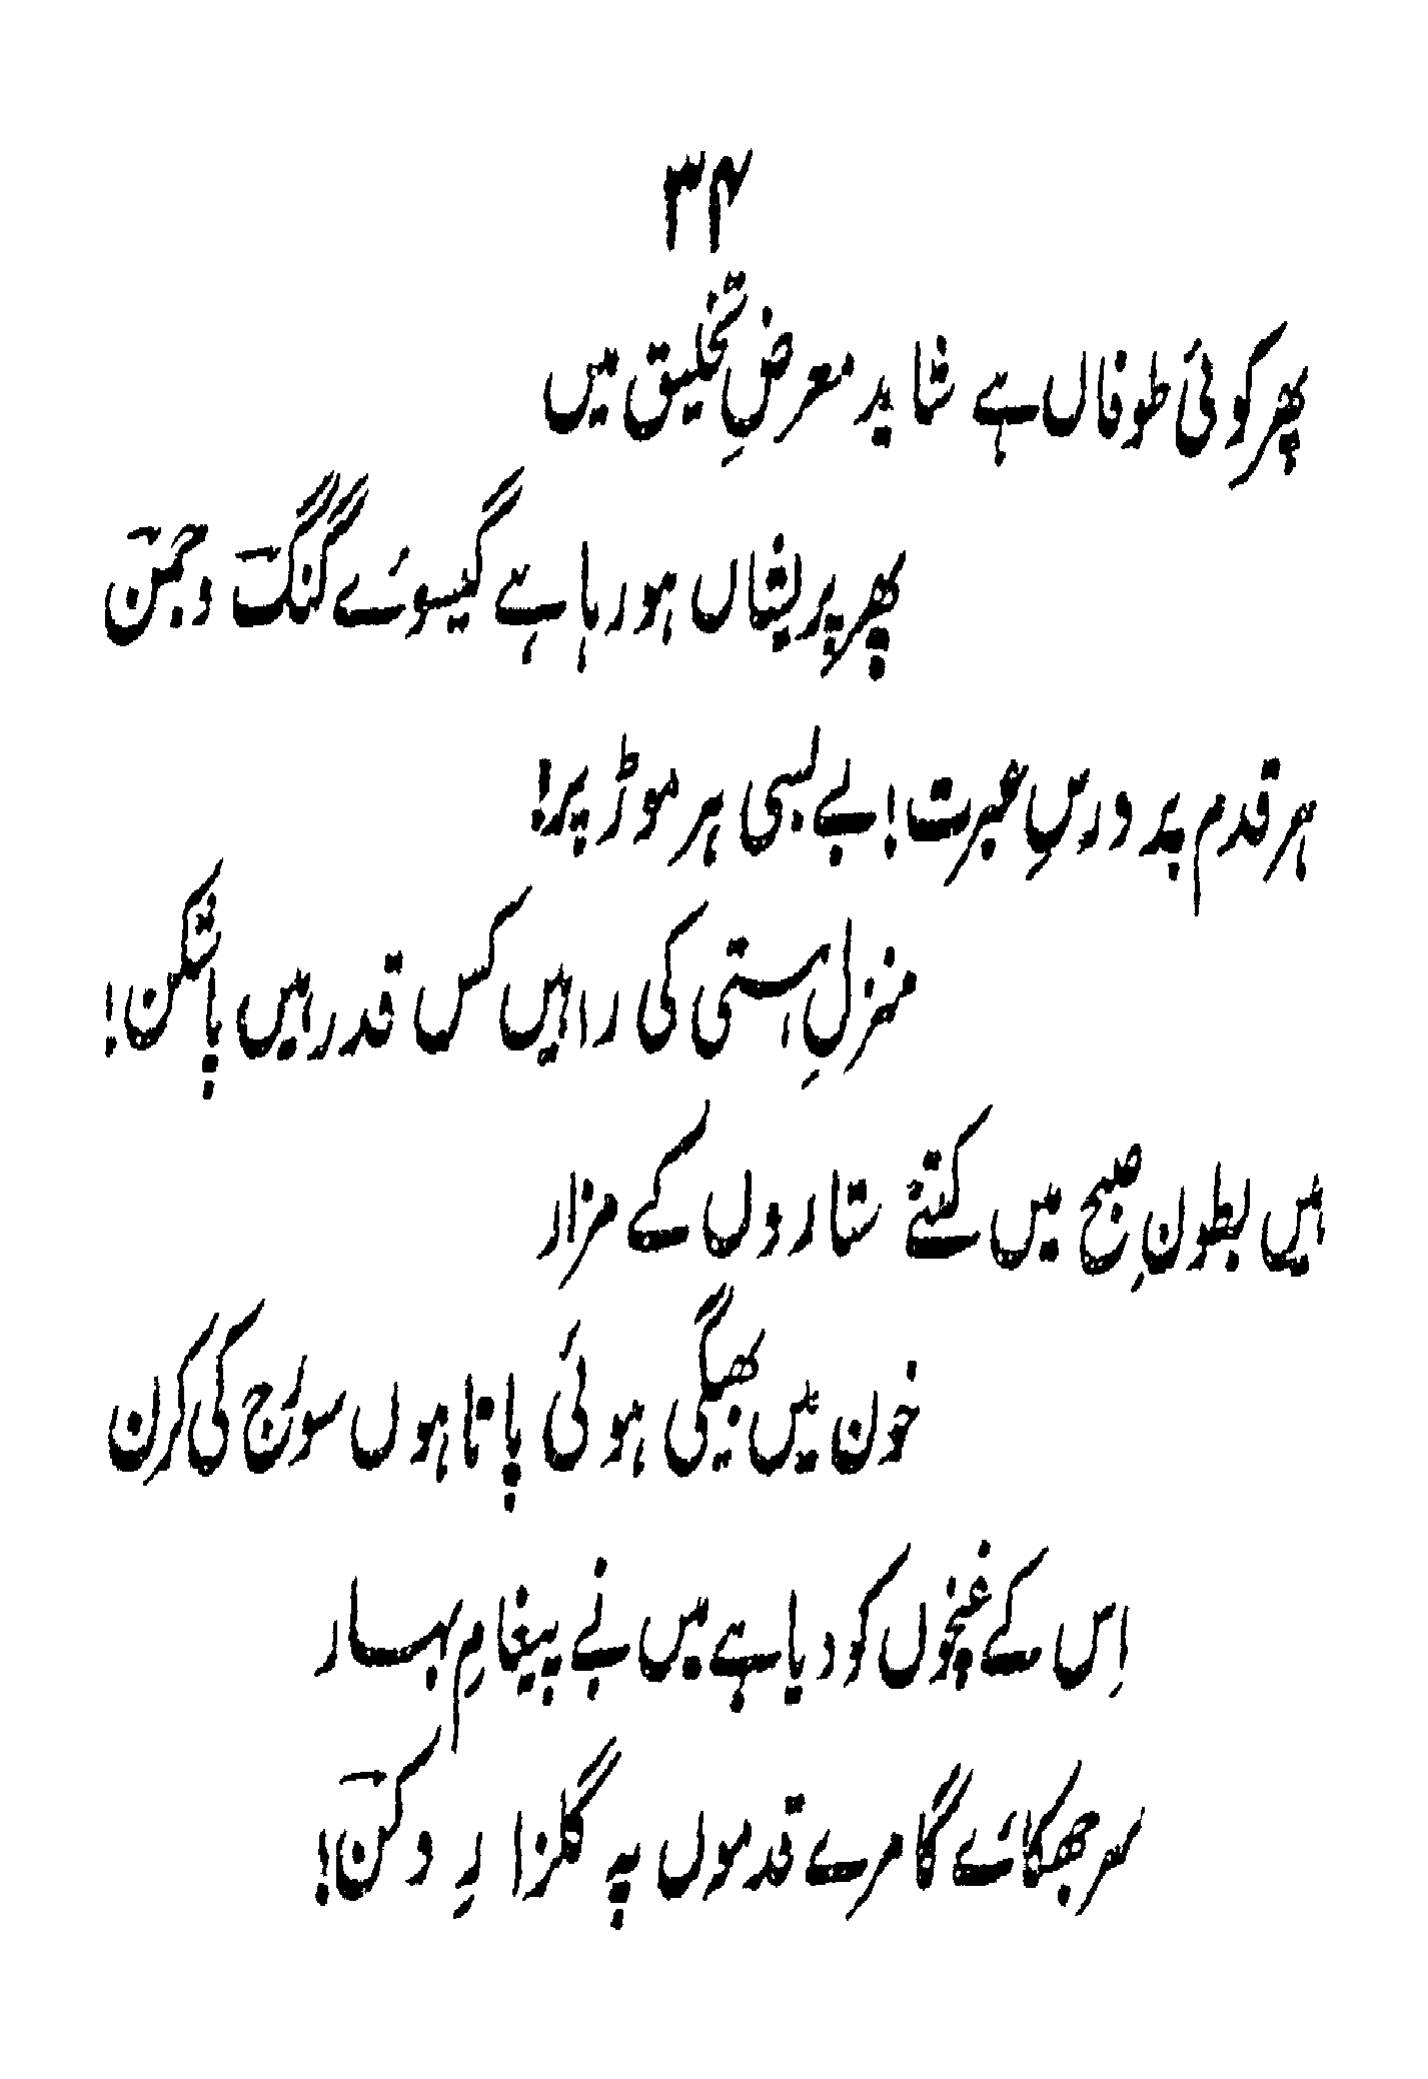 ۳۴
پھر کوئی طوفاں ہے شاید معرضِ تخلیق میں
پھر پریشاں ہو رہا ہے گیسوئے گنگ و جمن
ہر قدم پر درسِ عبرت! بے بسی ہر موڑ پر!
منزلِ ہستی کی راہیں کس قدر ہیں پُرشکن!
ہیں بطونِ صبح میں کتنے ستاروں کے مزار
خون میں بھیگی ہوئی پاتا ہوں سورج کی کرن
اِس کے غنچوں کو دیا ہے میں نے پیغامِ بہار
سر جھکائے گا مرے قدموں پہ گلزارِ دکن!